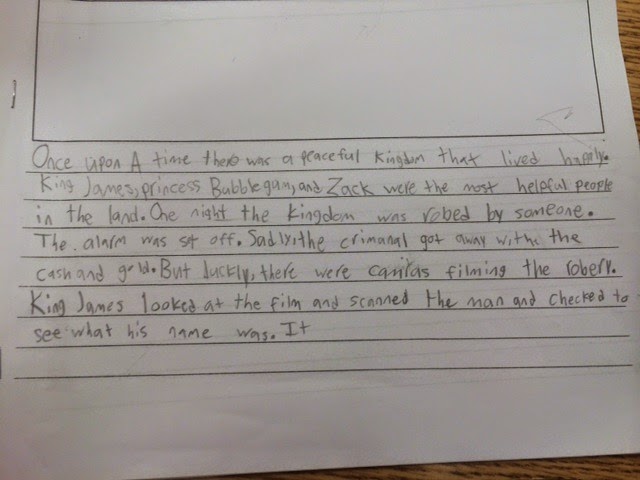 Once upon A time there was a peaceful kingdom that lived happily.
King James, princess Bubblegum, and Zack were the most helpful people
in the land. One night the kingdom was robed by someone.
The alarm was set off. Sadly, the crimanal got away with the
cash and gold. But luckly, there were camras filming the robery.
King James looked at the film and scanned the man and checked to
see what his name was. It